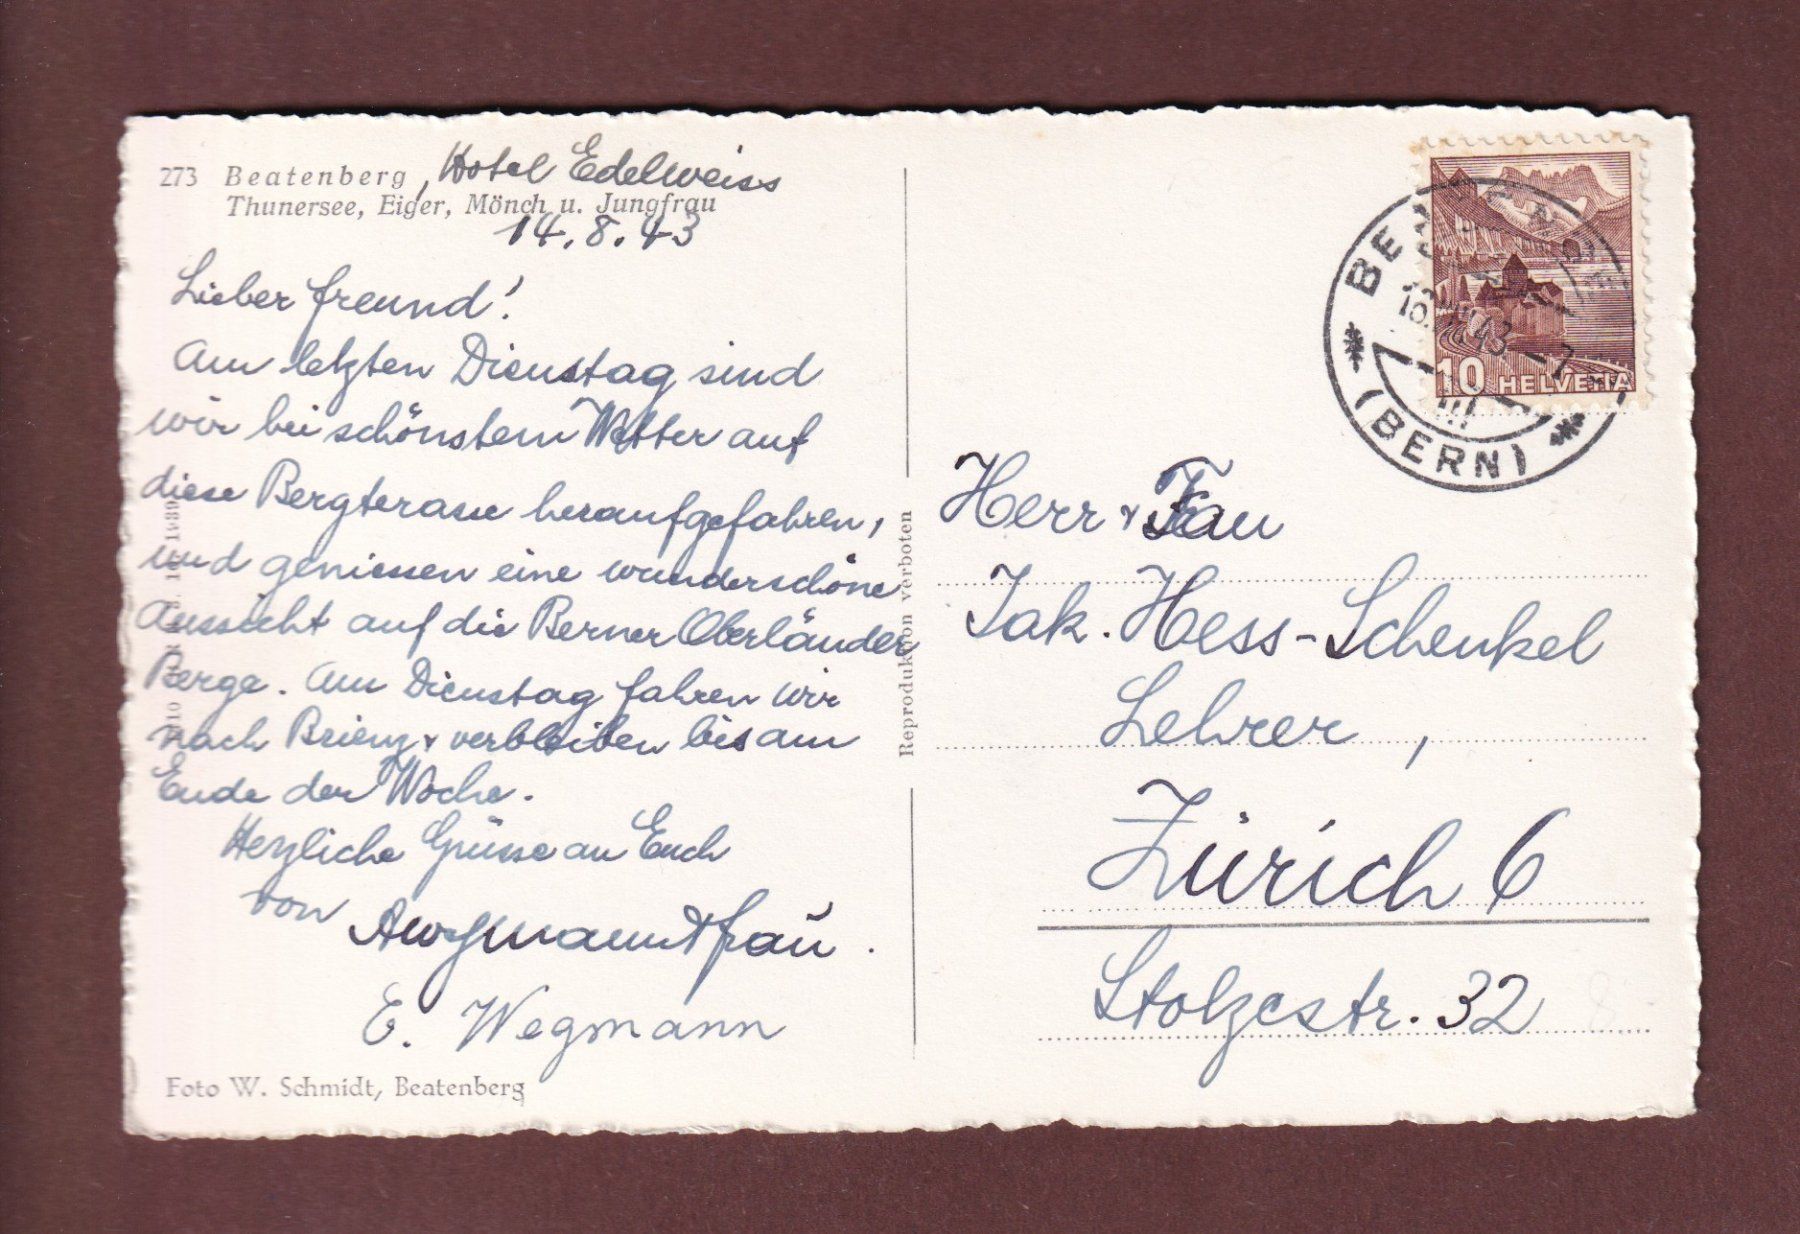 273 Beatenberg, Hotel Edelweiss
Thunersee, Eiger, Mönch u. Jungfrau
14.8.43
Lieber Freund!
Am letzten Dienstag sind
wir bei schönstem Wetter auf
diese Bergterasse heraufgefahren,
und geniessen eine wunderschöne
Aussicht auf die Berner Oberländer
Berge. Am Dienstag fahren wir
nach Brienz & verbleiben bis am
Ende der Woche.
Herzliche Grüsse an Euch
von
frau.
E. Wegmann
Foto W. Schmidt, Beatenberg
Reproduktion verboten
10 HELVETIA
(BERN)
Herr & Frau
Jak. Hess-Schenkel
Lehrer,
Zürich 6
Stolzestr. 32